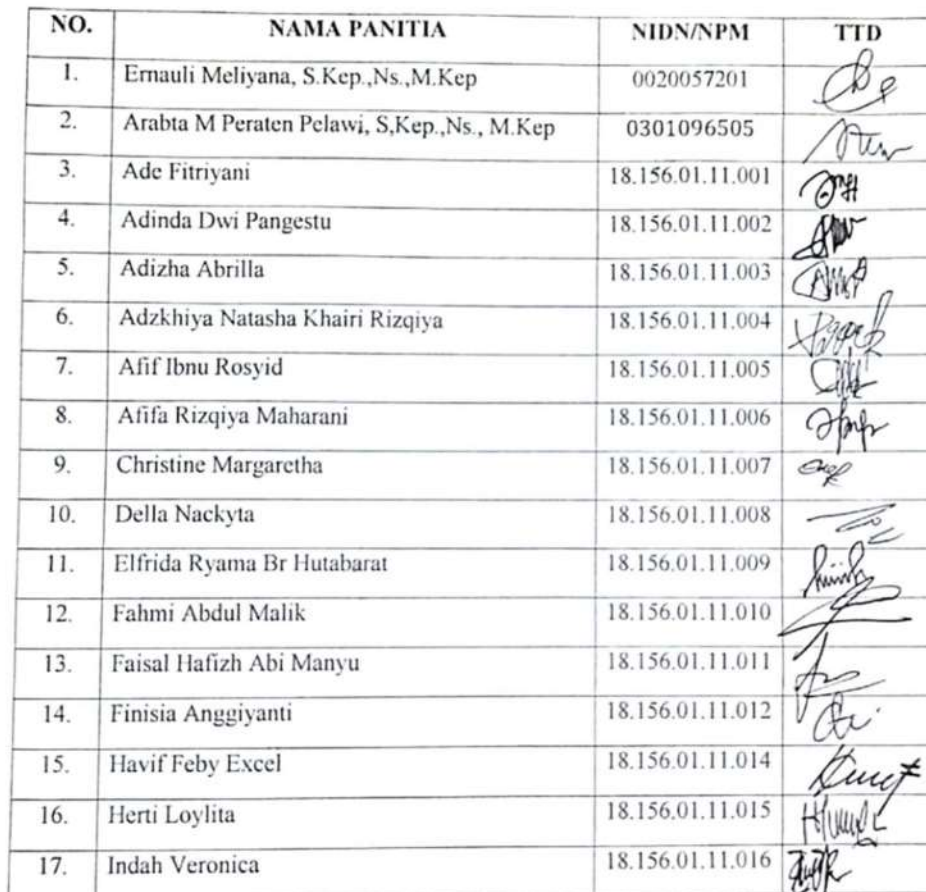 NO. NAMA PANITIA NIDN/NPM TTD
1. Ernauli Meliyana, S.Kep.,Ns.,M.Kep 0020057201
2. Arabta M Peraten Pelawi, S,Kep.,Ns., M.Kep 0301096505
3. Ade Fitriyani 18.156.01.11.001
4. Adinda Dwi Pangestu 18.156.01.11.002
5. Adizha Abrilla 18.156.01.11.003
6. Adzkhiya Natasha Khairi Rizqiya 18.156.01.11.004
7. Afif Ibnu Rosyid 18.156.01.11.005
8. Afifa Rizqiya Maharani 18.156.01.11.006
9. Christine Margaretha 18.156.01.11.007
10. Della Nackyta 18.156.01.11.008
11. Elfrida Ryama Br Hutabarat 18.156.01.11.009
12. Fahmi Abdul Malik 18.156.01.11.010
13. Faisal Hafizh Abi Manyu 18.156.01.11.011
14. Finisia Anggiyanti 18.156.01.11.012
15. Havif Feby Excel 18.156.01.11.014
16. Herti Loylita 18.156.01.11.015
17. Indah Veronica 18.156.01.11.016